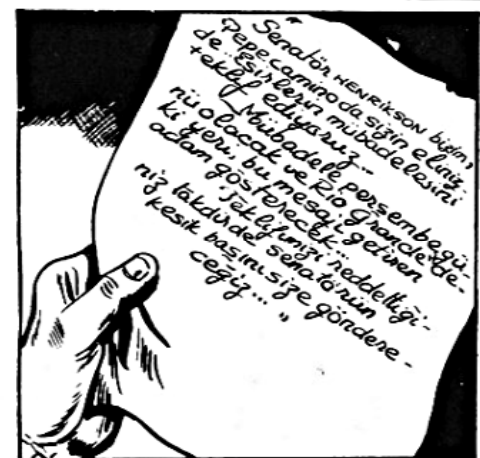 "Senatör HENRIKSON bizim,
Pepe camino da sizin eliniz-
de... Esirlerin mübadelesini
teklif ediyoruz...
Mübadele perşembe gü-
nü olacak ve Rio Grande'de-
ki yeri, bu mesajı getiren
adam gösterecek...
Teklifimizi reddettiği-
niz takdirde senatörün
kesik başını size göndere-
ceğiz..."